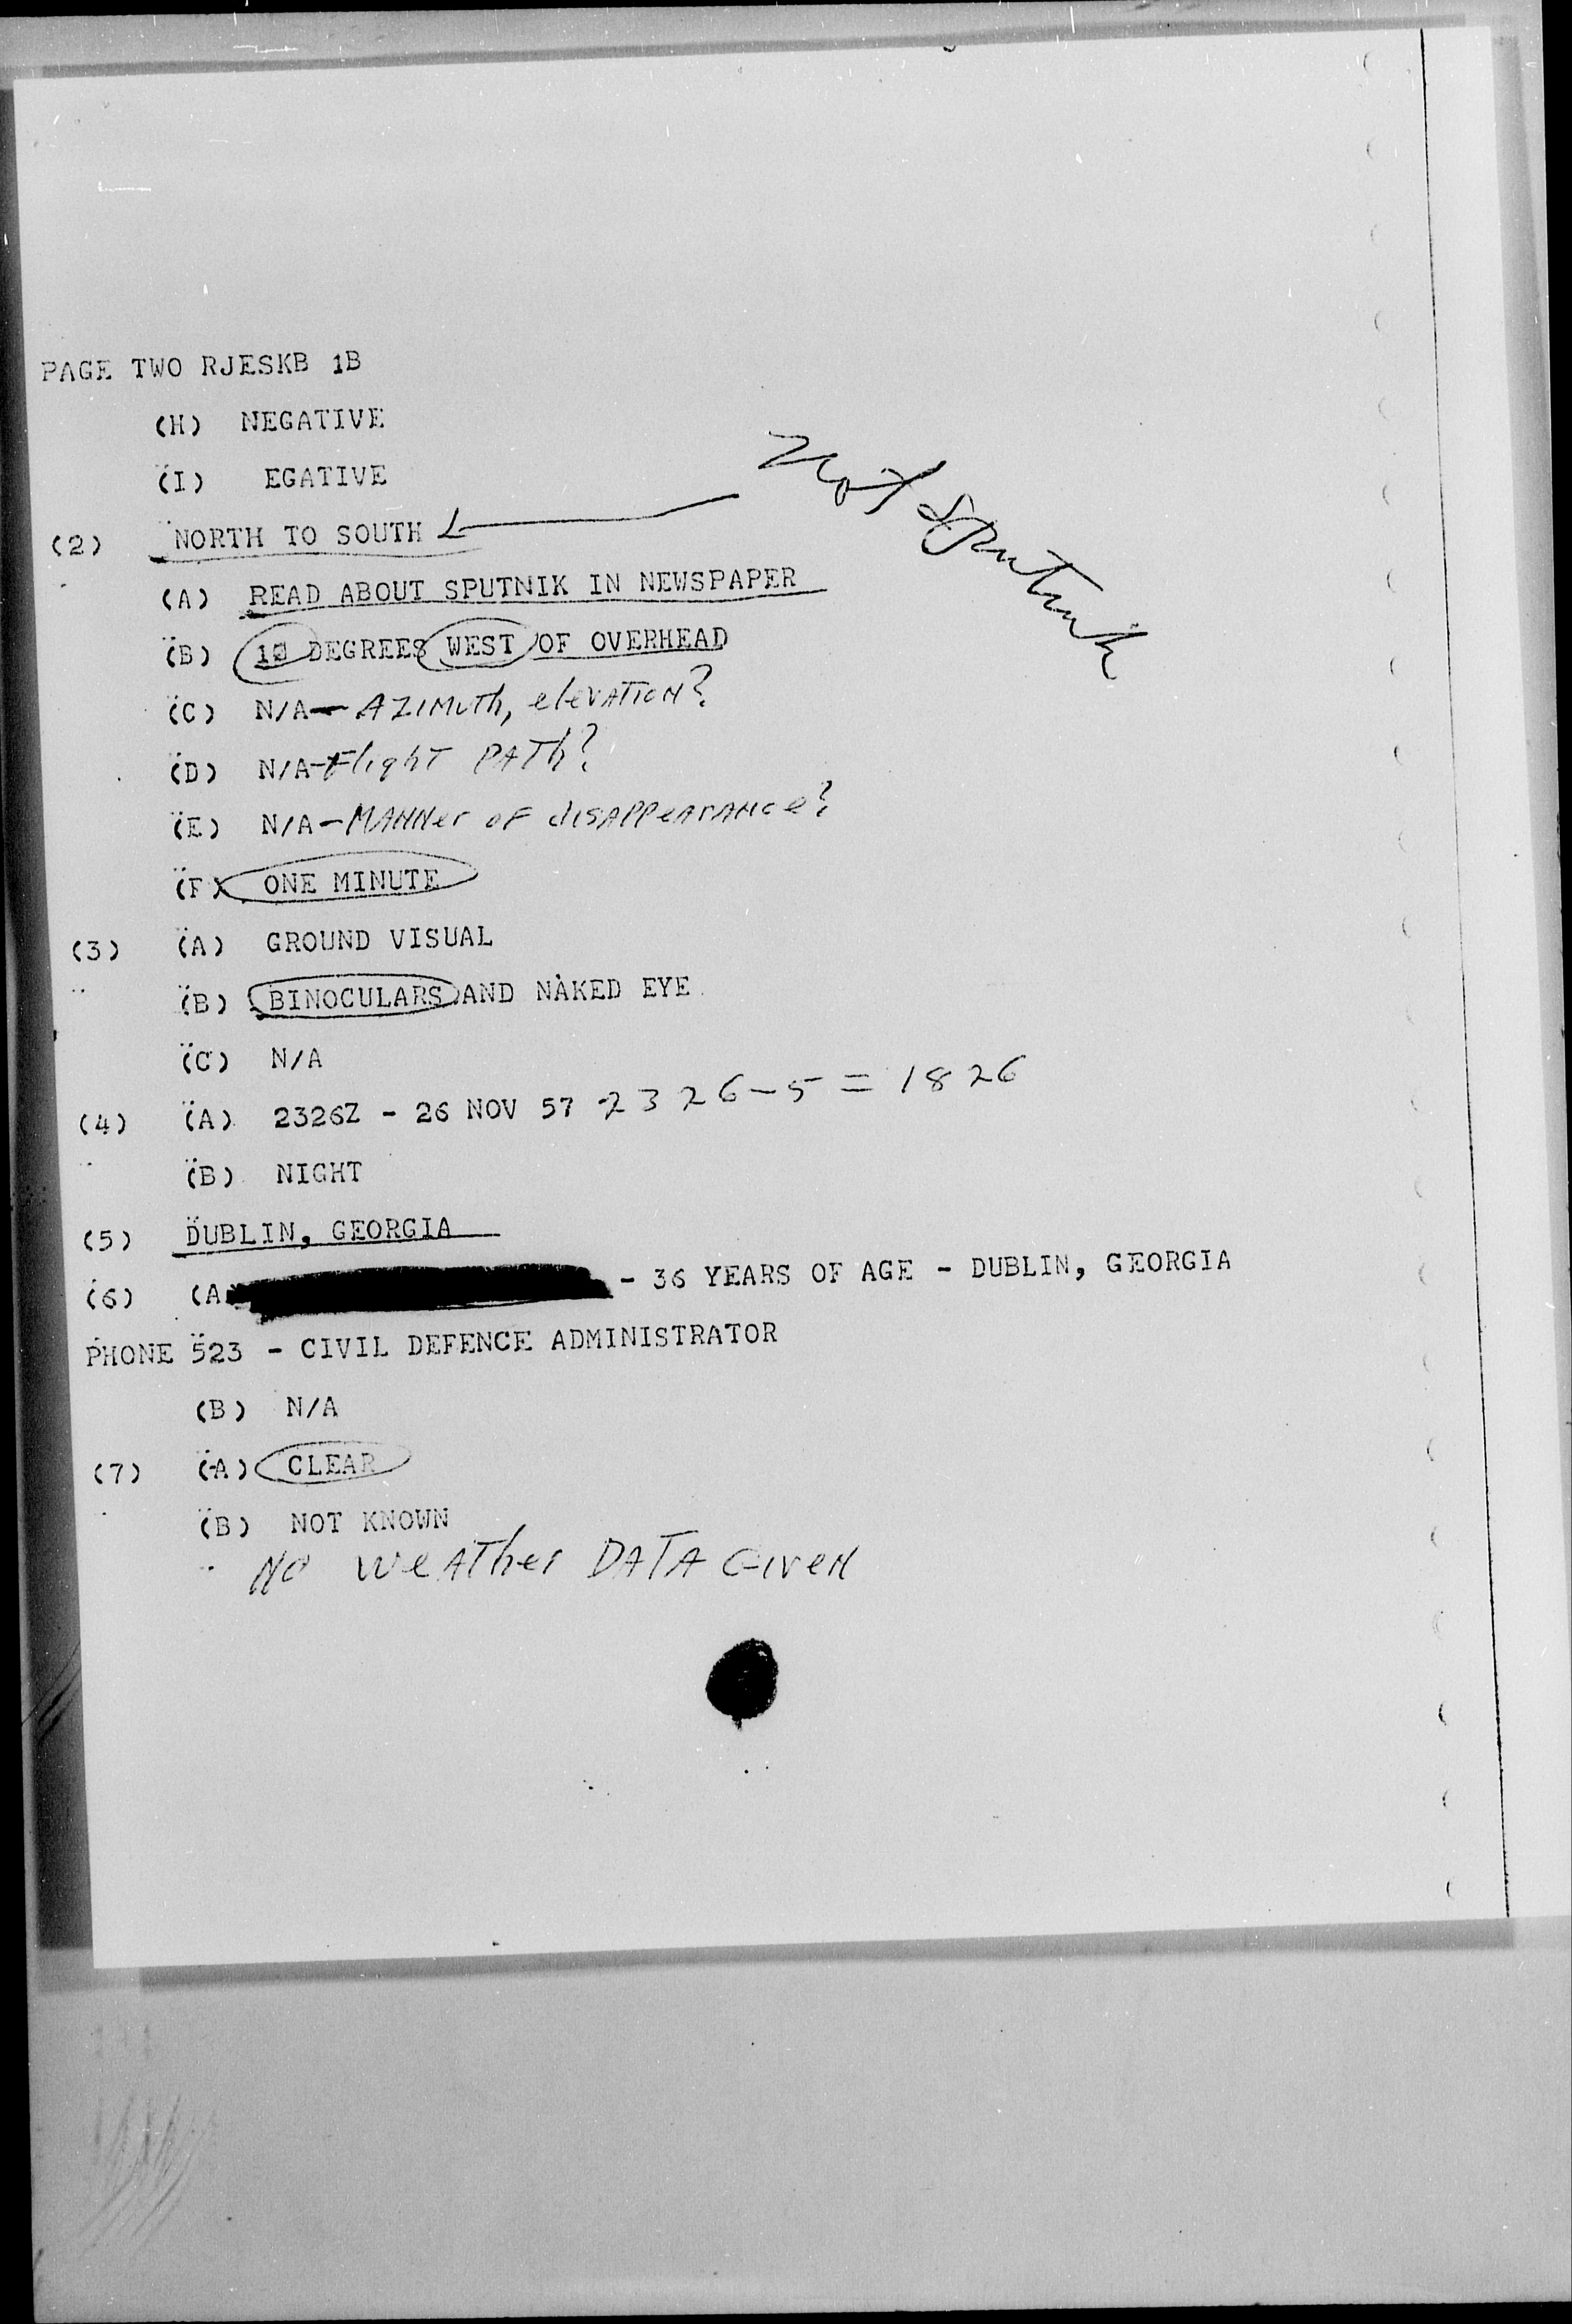 PAGE TWO RJESKB 1B
(H) NEGATIVE
(I) EGATIVE
(2) NORTH TO SOUTH
Not Sputnik
(A) READ ABOUT SPUTNIK IN NEWSPAPER
(B) 10 DEGREES WEST OF OVERHEAD
(C) N/A - AZIMUTh, elevATION?
(D) N/A - Flight PATh?
(E) N/A - MANNer OF disAPPeArANce?
(F) ONE MINUTE
(3) (A) GROUND VISUAL
(B) BINOCULARS AND NAKED EYE
(C) N/A
(4) (A) 2326Z - 26 NOV 57 2326-5 = 1826
(B) NIGHT
(5) DUBLIN, GEORGIA
(6) (A - 36 YEARS OF AGE - DUBLIN, GEORGIA
PHONE 523 - CIVIL DEFENCE ADMINISTRATOR
(B) N/A
(7) (A) CLEAR
(B) NOT KNOWN
NO weATher DATA GIveN